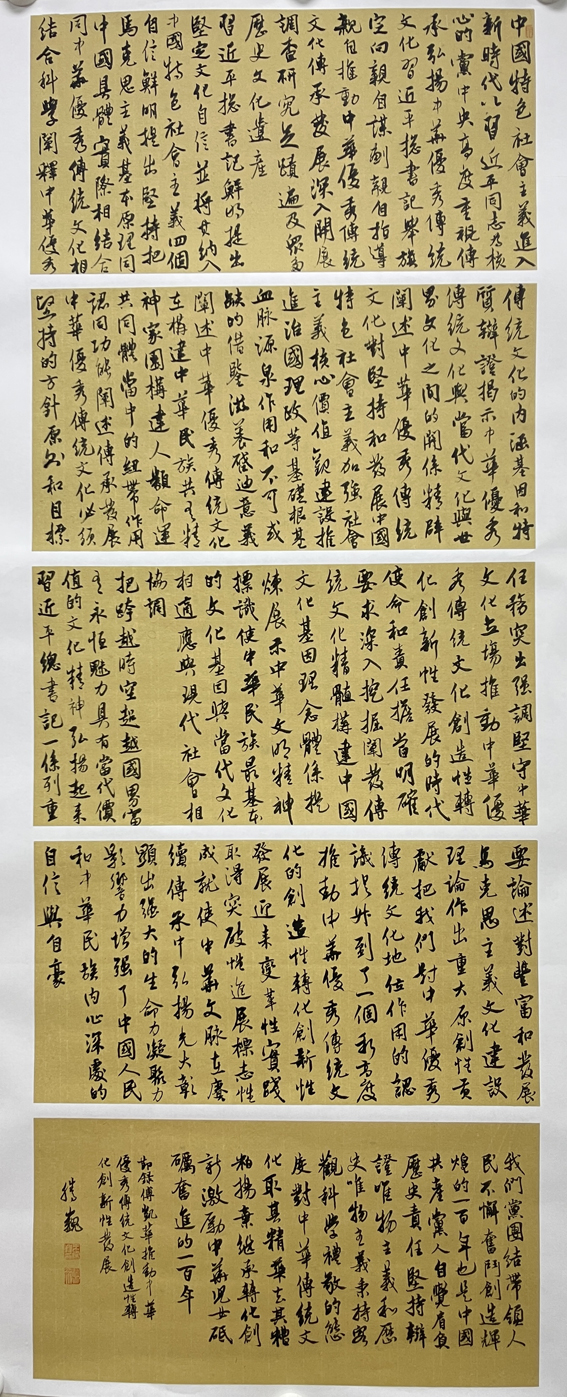 中國特色社會主義進入
新時代以習近平同志為核
心的黨中央高度重視傳
承弘揚中華優秀傳統
文化習近平總書記舉旗
定向親自謀劃親自指導
親自推動中華優秀傳統
文化傳承發展深入開展
調查研究足蹟遍及眾多
歷史文化遺產
習近平總書記鮮明提出
堅定文化自信並將其納入
中國特色社會主義四個
自信鮮明提出堅持把
馬克思主義基本原理同
中國具體實際相結合
同中華優秀傳統文化相
結合科學闡釋中華優秀
傳統文化的內涵基因和特
質辯證揭示中華優秀
傳統文化與當代文化與世
界文化之間的關係精辟
闡述中華優秀傳統
文化對堅持和發展中國
特色社會主義加強社會
主義核心價值觀建設推
進治國理政等基礎根基
血脈源泉作用和不可或
缺的借鑒滋養啟迪意義
闡述中華優秀傳統文化
在構建中華民族共有精
神家園構建人類命運
共同體當中的紐帶作用
認同功能闡述傳承發展
中華優秀傳統文化必須
堅持的方針原則和目標
任務突出强調堅守中華
文化立場推動中華優
秀傳統文化創造性轉
化創新性發展的時代
使命和責任擔當明確
要求深入挖掘闡發傳
統文化精髓構建中國
文化基因理念體係提
煉展示中華文明精神
標識使中華民族最基本
的文化基因與當代文化
相適應與現代社會相
協調
把跨越時空超越國界富
有永恒魅力具有當代價
值的文化精神弘揚起來
習近平總書記一係列重
要論述對豐富和發展
馬克思主義文化建設
理論作出重大原創性貢
獻把我們對中華優秀
傳統文化地位作用的認
識提升到了一個新高度
推動中華優秀傳統文
化的創造性轉化創新性
發展近來變革性實踐
取得突破性進展標志性
成就使中華文脈在賡
續傳承中弘揚光大彰
顯出强大的生命力凝聚力
影響力增强了中國人民
和中華民族內心深處的
自信與自豪
我們黨團結帶領人
民不懈奮鬥創造輝
煌的一百年也是中國
共產黨人自覺肩負
歷史責任堅持辯
證唯物主義和歷
史唯物主義秉持客
觀科學禮敬的態
度對中華傳統文
化取其精華去其糟
粕揚棄繼承轉化創
新激勵中華兒女砥
礪奮進的一百年
節錄傅凱華推動中華
優秀傳統文化創造性轉
化創新性發展